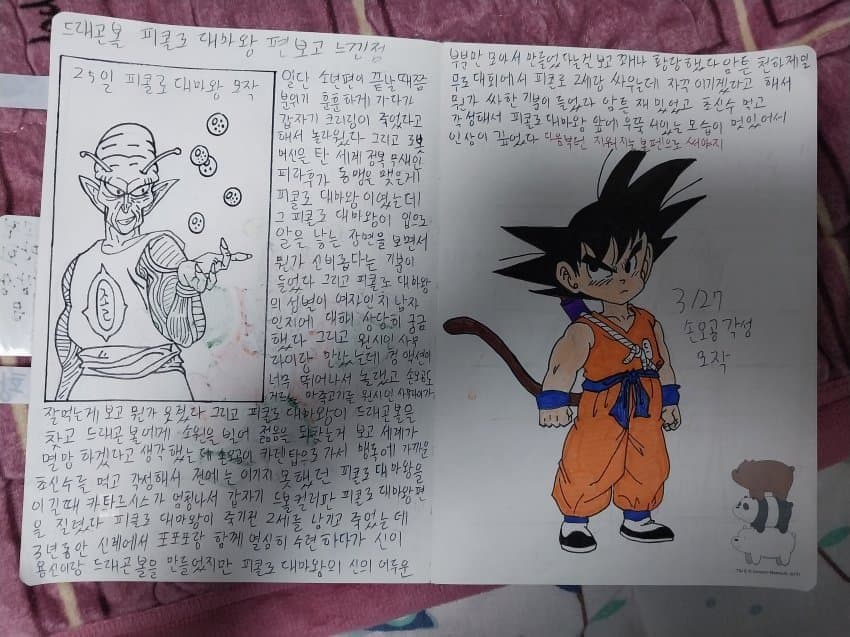 드래곤볼 피콜로 대마왕 편보고 느낀점
25일 피콜로 대마왕 모작
일단 소년편이 끝날때쯤
분위기 훈훈하게 가다가
갑자기 크리링이 죽었다고
해서 놀라웠다 그리고 3부
여신을 탄 세계 정복
피라후가 동맹을 맺은게
피콜로 대마왕 이였는데
그 피콜로 대마왕이 입으로
알을 낳는 장면을 보면서
뭔가 신비롭다는 기분이
들었다 그리고 피콜로 대마왕
의 성별이 여자인지 남자
인지에 대해 상당히 궁금
했다 그리고 원시인 사무
라이랑 만났는데 검 액션이
너무 뛰어나서 놀랬고 손오공도
만죽고기를 원시인 사무라이가
잘먹는게 보고 뭔가 웃겼다 그리고 피콜로 대마왕이 드래곤볼을
찾고 드래곤볼에게 소원을 빌어 젊음을 되찾는거 보고 세계가
멸망 하겠다고 생각했는데 손오공이 카린탑으로 가서 맹독에 가까운
초신수를 먹고 각성해서 전에는 이기지 못해던 피콜로 대마왕을
이길때 카타르시스가 엄청나서 갑자기 드볼컬러판 피콜로 대마왕편
을 질렀다 피콜로 대마왕이 죽기전 2세를 남기고 죽었는데
3년동안 신계에서 포포랑 함께 열심히 수련하다가 신이
용신이랑 드래곤볼을 만들었지만 피콜로 대마왕의 신의 어두운
부분만 모아서 만들었다는걸 보고 꽤나 황당했다 암튼 천하제일
무도대회에서 피콜로 2세랑 싸우는데 자꾸 이기겠다고 해서
뭔가 싸한 기분이 들었다 암튼 재밌었고 초신수 먹고
각성해서 피콜로 대마왕 앞에 우뚝 서있는 모습이 멋있어서
인상이 깊었다 다음부턴 지워지는 볼펜으로 써야지
3/27
손오공 각성
모작